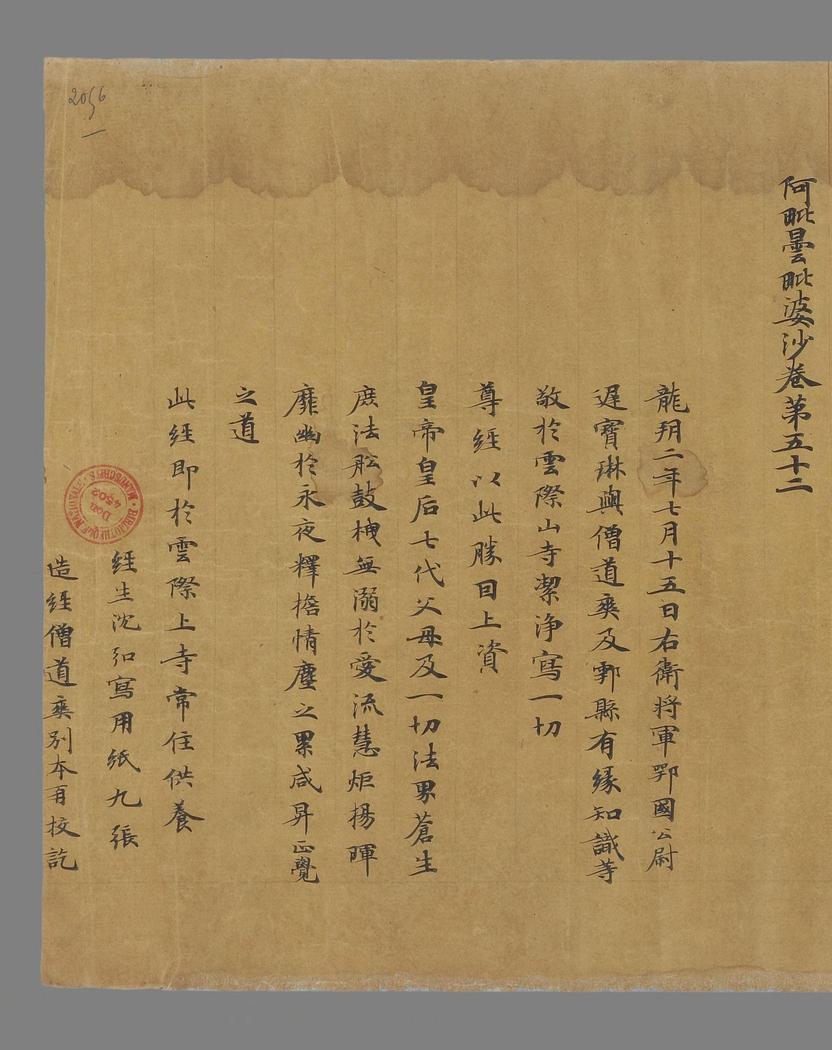 阿毗曇毗婆沙卷第五十二
龍朔二年七月十五日右衛將軍鄂國公尉
遲寶琳與僧道爽及鄠縣有緣知識等
敬於雲際山寺潔淨寫一切
尊經以此勝因上資
皇帝皇后七代父母及一切法界蒼生
庶法舩鼓栧無溺於愛流慧炬揚暉
靡幽於永夜釋擔情塵之累咸昇正覺
之道
此經即於雲際上寺常住供養
經生沈弘寫用紙九張
造經僧道爽別本再校訖
2056
BIBLIOTHÈQUE NATIONALE MANUSCRITS
Don
4502